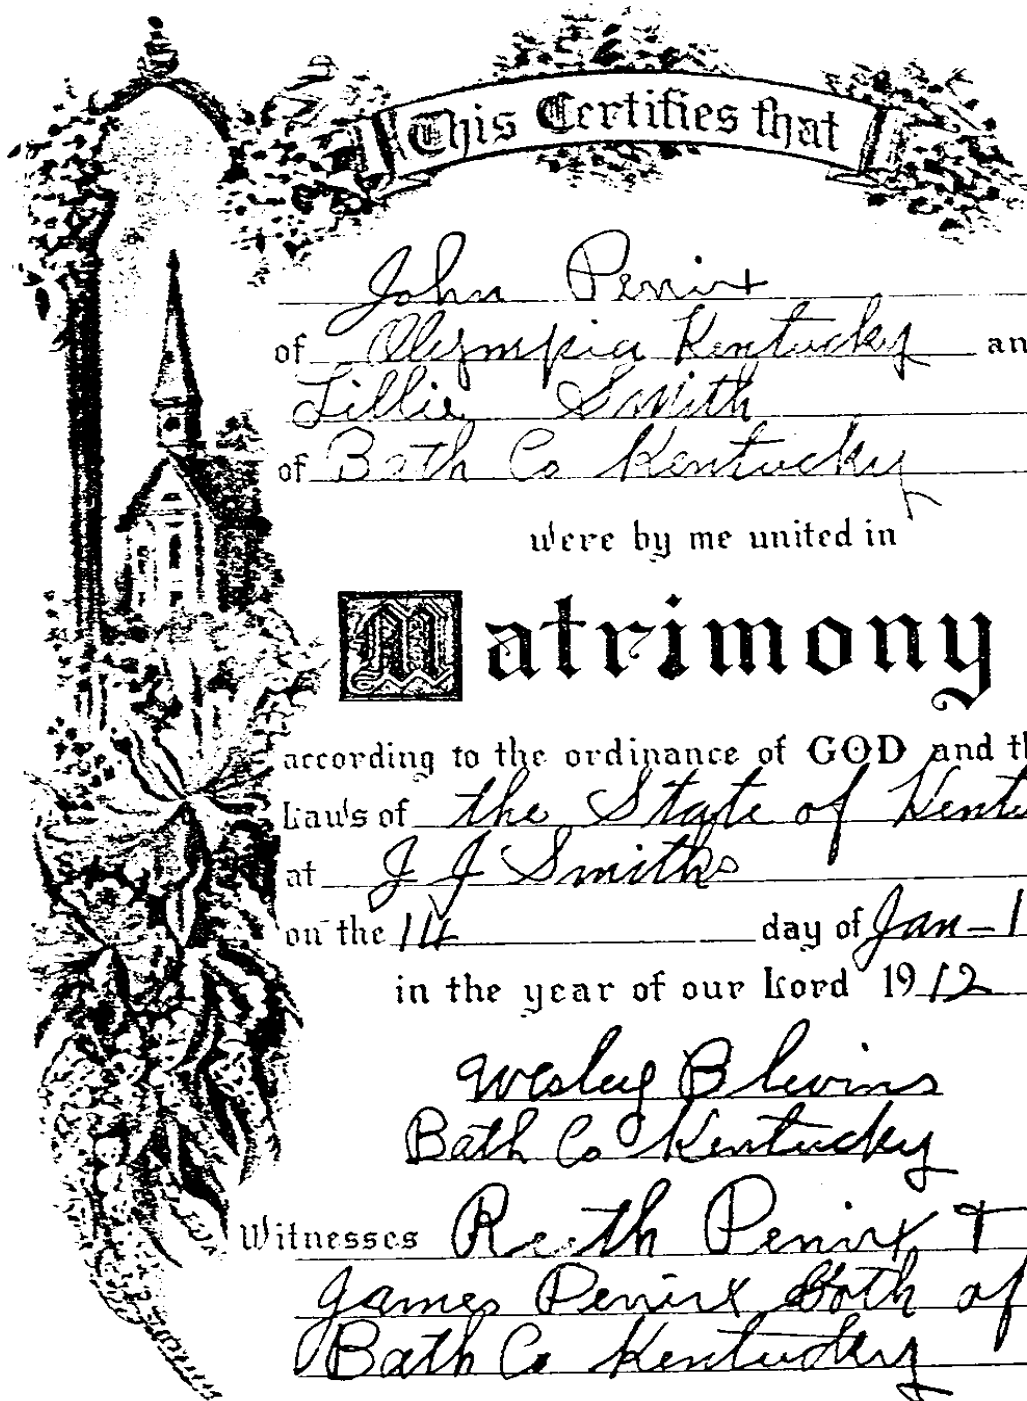 This Certifies that
John Penix
of Olympia Kentucky an
Lillie Smith
of Bath Co Kentucky
were by me united in
Matrimony
according to the ordinance of GOD and th
Laws of the State of Kentu
at J J Smiths
on the 14 day of Jan - 1
in the year of our Lord 1912
Wesley Blevins
Bath Co Kentucky
Witnesses Reeth Penix +
James Penix Both of
Bath Co Kentucky